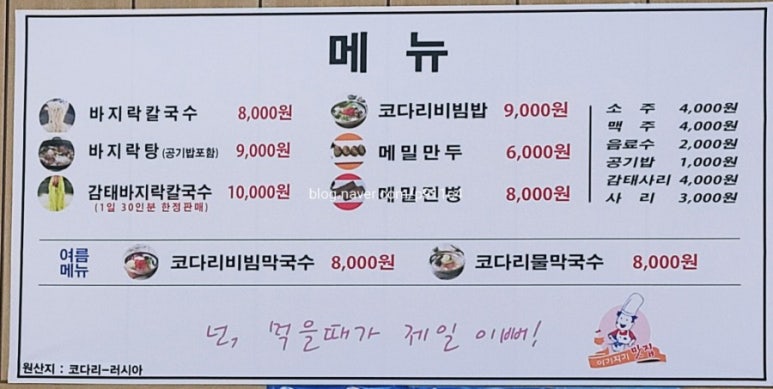 메 뉴
바지락칼국수 8,000원
바지락탕 (공기밥포함) 9,000원
감태바지락칼국수 10,000원
(1일 30인분 한정판매)
코다리비빔밥 9,000원
메밀만두 6,000원
메밀전병 8,000원
소 주 4,000원
맥 주 4,000원
음료수 2,000원
공기밥 1,000원
감태사리 4,000원
사 리 3,000원
여름
메뉴
코다리비빔막국수 8,000원
코다리물막국수 8,000원
넌, 먹을때가 제일 이뻐!
맛집
원산지 : 코다리-러시아
blog.naver.com